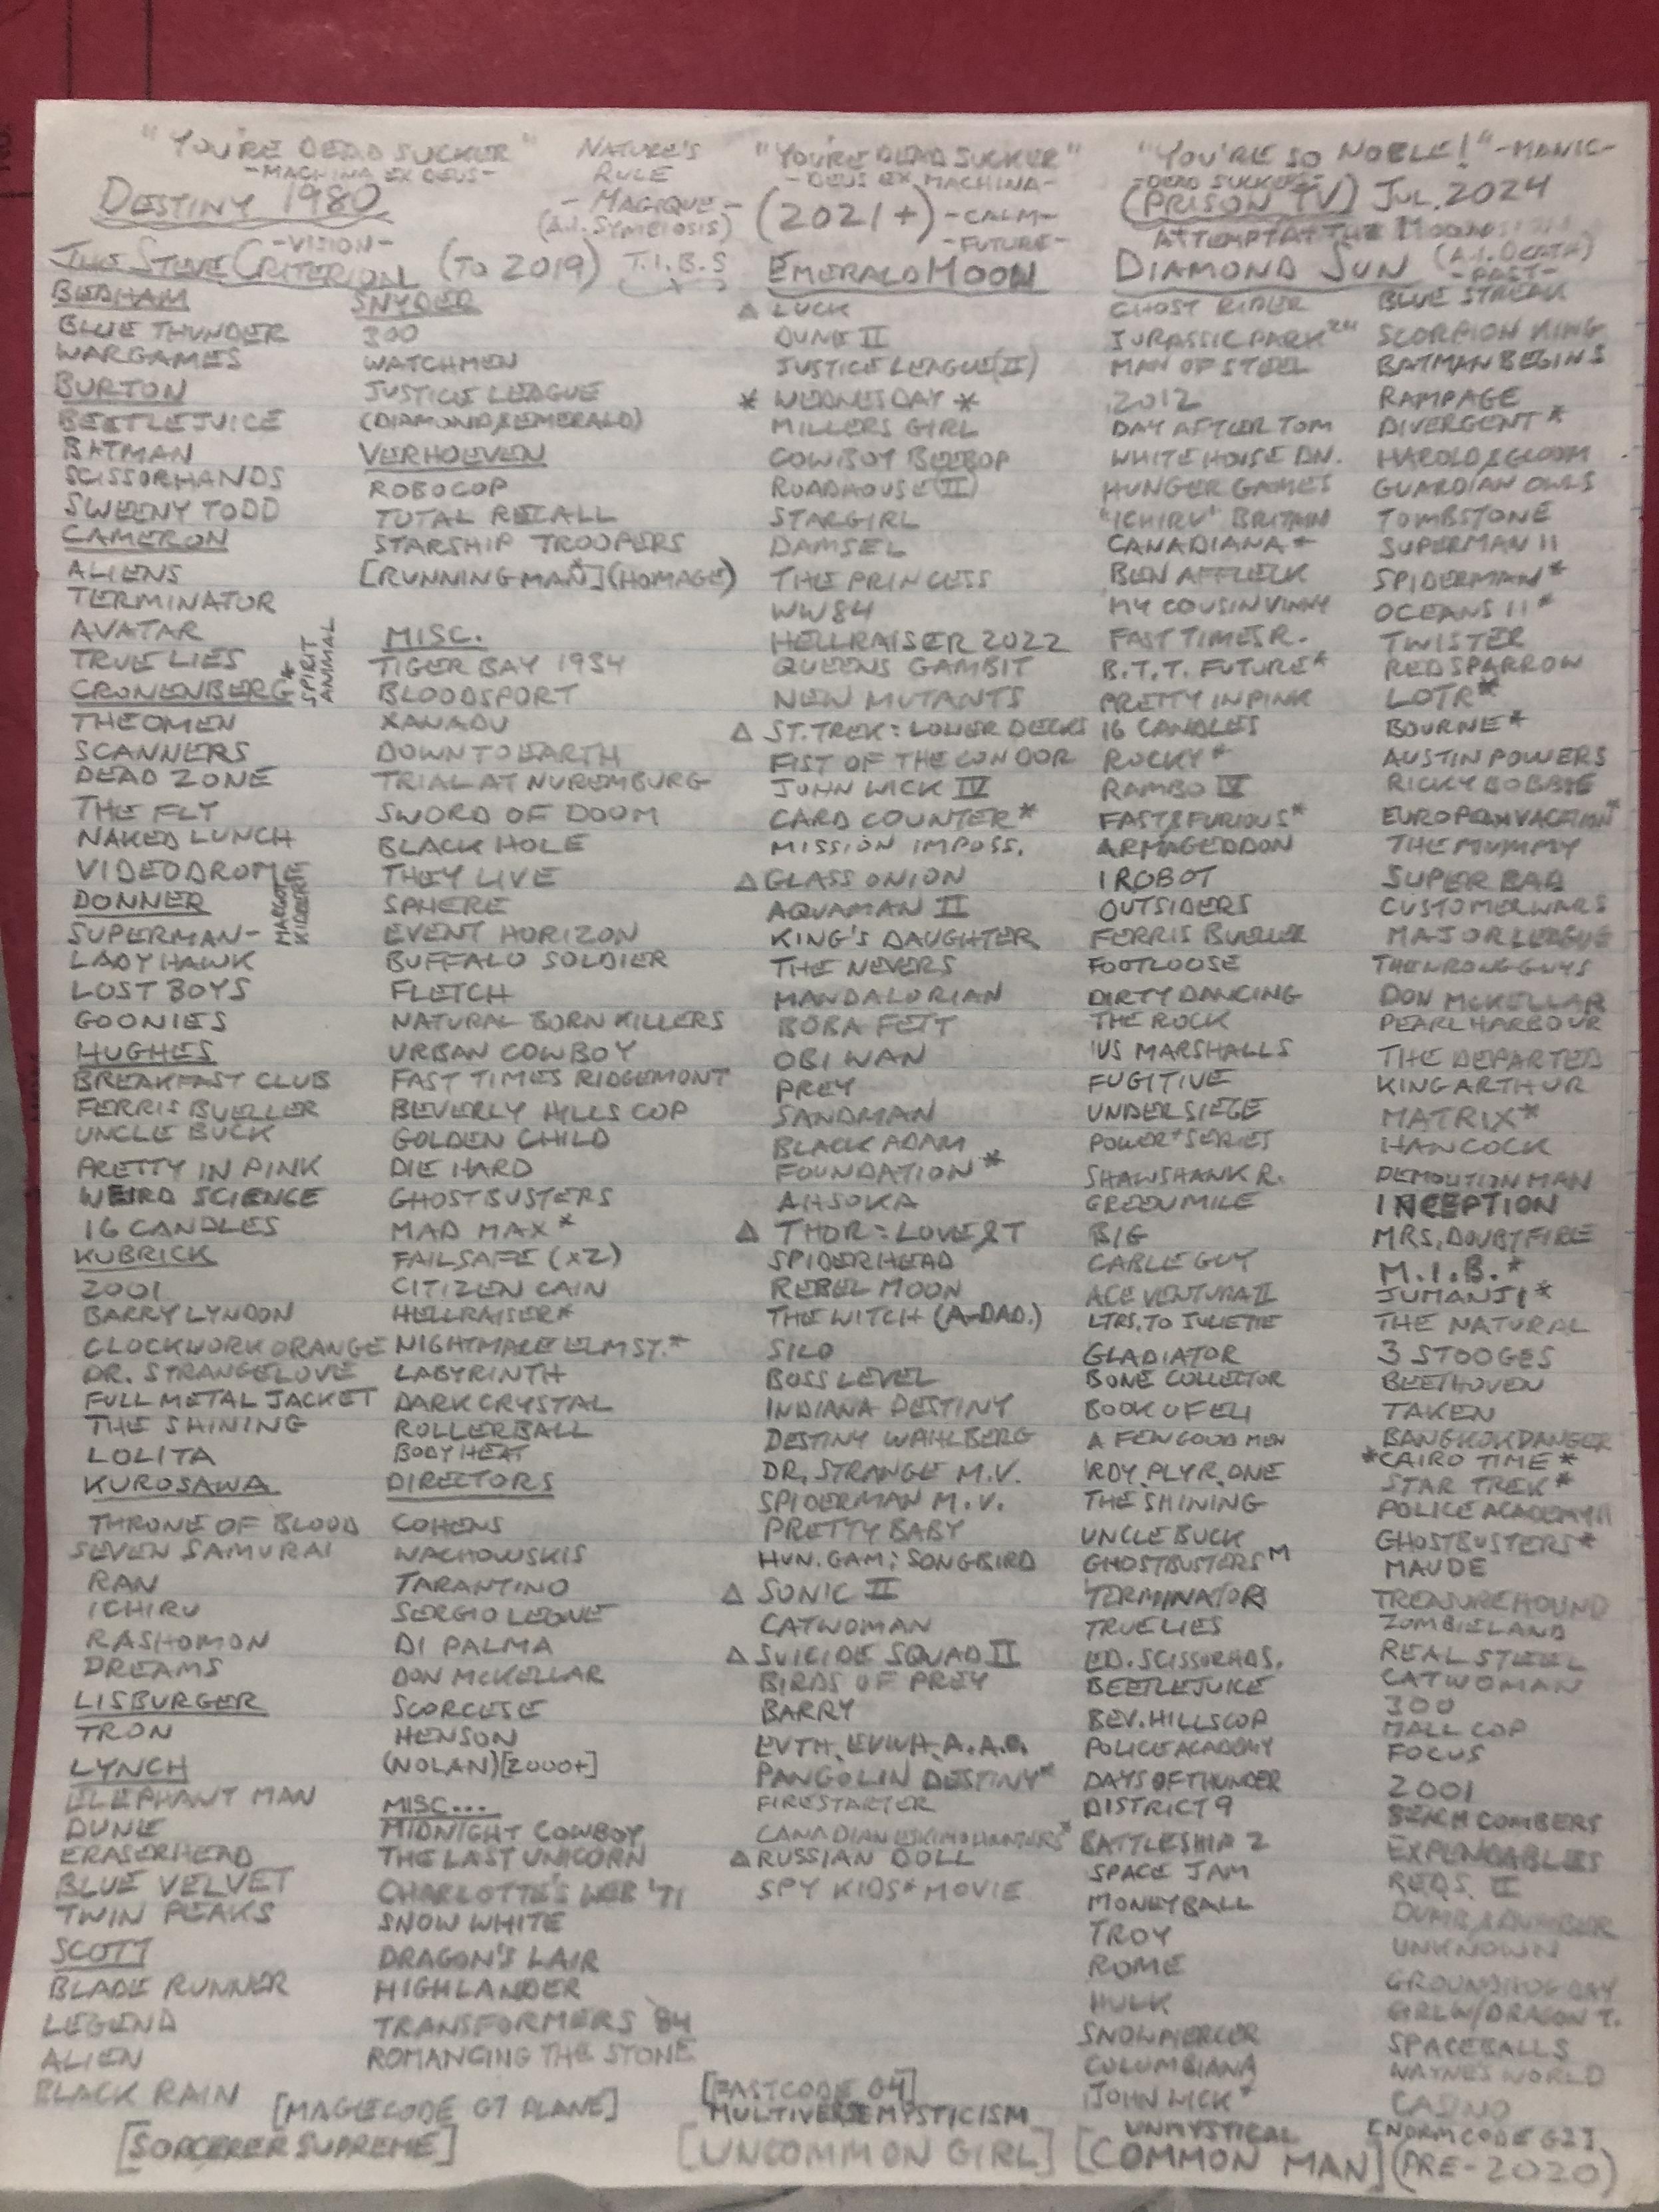 "YOU'RE DEAD SUCKER"
-MACHINA EX DEUS-
DESTINY 1980
-VISION-
THE STEVE CRITERION (TO 2019)
NATURE'S
RULE
-MAGIQUE-
(A.I. SYMBIOSIS)
T.I.B.S
"YOU'RE DEAD SUCKER"
-DEUS EX MACHINA-
(2021+) -CALM-
-FUTURE-
EMERALD MOON
"YOU'RE SO NOBLE!" -MANIC-
-DEAD SUCKER-
(PRISON TV) JUL. 2024
ATTEMPT AT THE
DIAMOND SUN (A.I. DEATH)
-PAST-
BEDHAM
BLUE THUNDER
WARGAMES
BURTON
BEETLEJUICE
BATMAN
SCISSORHANDS
SWEENY TODD
CAMERON
ALIENS
TERMINATOR
AVATAR
TRUE LIES
CRONENBERG*
SPIRIT
ANIMAL
THE OMEN
SCANNERS
DEAD ZONE
THE FLY
NAKED LUNCH
VIDEODROME
DONNER
SUPERMAN-
MARGOT
KIDDER
LADYHAWK
LOST BOYS
GOONIES
HUGHES
BREAKFAST CLUB
FERRIS BUELLER
UNCLE BUCK
PRETTY IN PINK
WEIRD SCIENCE
16 CANDLES
KUBRICK
2001
BARRY LYNDON
CLOCKWORK ORANGE
DR. STRANGELOVE
FULL METAL JACKET
THE SHINING
LOLITA
KUROSAWA
THRONE OF BLOOD
SEVEN SAMURAI
RAN
ICHIRU
RASHOMON
DREAMS
LISBURGER
TRON
LYNCH
ELEPHANT MAN
DUNE
ERASERHEAD
BLUE VELVET
TWIN PEAKS
SCOTT
BLADE RUNNER
LEGEND
ALIEN
BLACK RAIN
SNYDER
300
WATCHMEN
JUSTICE LEAGUE
(DIAMOND&EMERALD)
VERHOEVEN
ROBOCOP
TOTAL RECALL
STARSHIP TROOPERS
[RUNNING MAN*](HOMAGE)
MISC.
TIGER BAY 1934
BLOODSPORT
XANADU
DOWN TO EARTH
TRIAL AT NUREMBURG
SWORD OF DOOM
BLACK HOLE
THEY LIVE
SPHERE
EVENT HORIZON
BUFFALO SOLDIER
FLETCH
NATURAL BORN KILLERS
URBAN COWBOY
FAST TIMES RIDGEMONT
BEVERLY HILLS COP
GOLDEN CHILD
DIE HARD
GHOSTBUSTERS
MAD MAX*
FAILSAFE (X2)
CITIZEN CAIN
HELLRAISER*
NIGHTMARE ELM ST.*
LABYRINTH
DARK CRYSTAL
ROLLERBALL
BODY HEAT
DIRECTORS
COHENS
WACHOWSKIS
TARANTINO
SERGIO LEONE
DI PALMA
DON MCKELLAR
SCORCESE
HENSON
(NOLAN)[2000+]
MISC...
MIDNIGHT COWBOY
THE LAST UNICORN
CHARLOTTE'S WEB '71
SNOW WHITE
DRAGON'S LAIR
HIGHLANDER
TRANSFORMERS '84
ROMANCING THE STONE
[MAGECODE G7 PLANE]
[SORCERER SUPREME]
△ LUCK
DUNE II
JUSTICE LEAGUE(II)
* WEDNESDAY *
MILLERS GIRL
COWBOY BEEBOP
ROADHOUSE(II)
STARGIRL
DAMSEL
THE PRINCESS
WW84
HELLRAISER 2022
QUEENS GAMBIT
NEW MUTANTS
△ ST. TREK: LOWER DECKS
FIST OF THE CONDOR
JOHN WICK IV
CARD COUNTER*
MISSION IMPOSS.
△ GLASS ONION
AQUAMAN II
KING'S DAUGHTER
THE NEVERS
MANDALORIAN
BOBA FETT
OBI WAN
PREY
SANDMAN
BLACK ADAM
FOUNDATION*
AHSOKA
△ THOR: LOVE&T
SPIDERHEAD
REBEL MOON
THE WITCH (A-DAD.)
SILO
BOSS LEVEL
INDIANA DESTINY
DESTINY WAHLBERG
DR. STRANGE M.V.
SPIDERMAN M.V.
PRETTY BABY
HUN. GAM: SONGBIRD
△ SONIC II
CATWOMAN
△ SUICIDE SQUAD II
BIRDS OF PREY
BARRY
EVTH. EVWH. A.A.O.
PANGOLIN DESTINY*
FIRESTARTER
CANADIAN ESKIMO HUNTERS*
△ RUSSIAN DOLL
SPY KIDS* MOVIE
[FASTCODE G4]
MULTIVERSE MYSTICISM
[UNCOMMON GIRL]
GHOST RIDER
JURASSIC PARK
MAN OF STEEL
2012
DAY AFTER TOM
WHITE HOUSE DN.
HUNGER GAMES
"ICHIRU" BRITAIN
CANADIANA*
BEN AFFLECK
MY COUSIN VINNY
FAST TIMES R.
B.T.T. FUTURE*
PRETTY IN PINK
16 CANDLES
ROCKY*
RAMBO IV
FAST&FURIOUS*
ARMAGEDDON
I ROBOT
OUTSIDERS
FERRIS BUELLER
FOOTLOOSE
DIRTY DANCING
THE ROCK
US MARSHALLS
FUGITIVE
UNDER SIEGE
POWER*SERIES
SHAWSHANK R.
GREEN MILE
BIG
CABLE GUY
ACE VENTURA II
LTRS. TO JULIETTE
GLADIATOR
BONE COLLECTOR
BOOK OF ELI
A FEW GOOD MEN
RDY. PLYR. ONE
THE SHINING
UNCLE BUCK
GHOSTBUSTERS M
TERMINATOR
TRUE LIES
ED. SCISSORHDS.
BEETLEJUICE
BEV. HILLS COP
POLICE ACADEMY
DAYS OF THUNDER
DISTRICT 9
BATTLESHIP 2
SPACE JAM
MONEYBALL
TROY
ROME
HULK
SNOWPIERCER
COLUMBIANA
JOHN WICK*
UNMYSTICAL
[COMMON MAN]
BLUE STREAK
SCORPION KING
BATMAN BEGINS
RAMPAGE
DIVERGENT*
HAROLD & GLOOM
GUARDIAN OWLS
TOMBSTONE
SUPERMAN II
SPIDERMAN*
OCEANS 11*
TWISTER
RED SPARROW
LOTR*
BOURNE*
AUSTIN POWERS
RICKY BOBBIE
EUROPEAN VACATION*
THE MUMMY
SUPER BAD
CUSTOMER WARS
MAJOR LEAGUE
THE WRONG GUYS
DON MCKELLAR
PEARL HARBOUR
THE DEPARTED
KING ARTHUR
MATRIX*
HANCOCK
DEMOLITION MAN
INCEPTION
MRS. DOUBTFIRE
M.I.B.*
JUMANJI*
THE NATURAL
3 STOOGES
BEETHOVEN
TAKEN
BANGKOK DANGER
*CAIRO TIME*
STAR TREK*
POLICE ACADEMY II
GHOSTBUSTERS*
MAUDE
TREASURE HOUND
ZOMBIELAND
REAL STEEL
CATWOMAN
300
MALL COP
FOCUS
2001
BEACHCOMBERS
EXPENDABLES
REDS II
DUMB&DUMBER
UNKNOWN
GROUNDHOG DAY
GIRL W/DRAGON T.
SPACEBALLS
WAYNE'S WORLD
CASINO
[NORMCODE G2]
(PRE-2020)